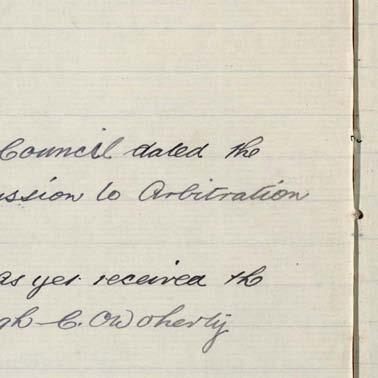 Council dated the
ission to Arbitration
as yet received the
gh C. O'Doherty